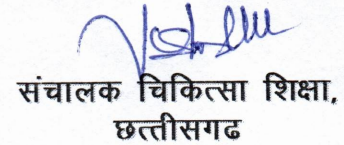 संचालक चिकित्सा शिक्षा,
छत्तीसगढ